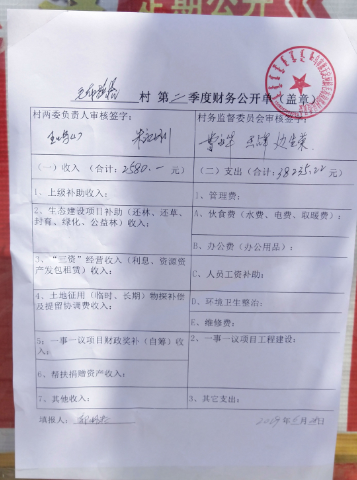 定期公开
村 第二季度财务公开单（盖章）
村两委负责人审核签字： 村务监督委员会审核签字：
（一）收入（合计：2580.— 元） （二）支出（合计：38235.22 元）
1、上级补助收入： 1、管理费：
2、生态建设项目补助（还林、还草、封育、绿化、公益林）收入： A、伙食费（水费、电费、取暖费）：
B、办公费（办公用品）：
3、“三资”经营收入（利息、资源资产发包租赁）收入： C、人员工资补助：
4、土地征用（临时、长期）物探补偿及提留协调费收入： D、环境卫生整治：
E、维修费：
5、一事一议项目财政奖补（自筹）收入： 2、一事一议项目工程建设：
6、帮扶捐赠资产收入：
7、其他收入： 3、其它支出：
填报人：